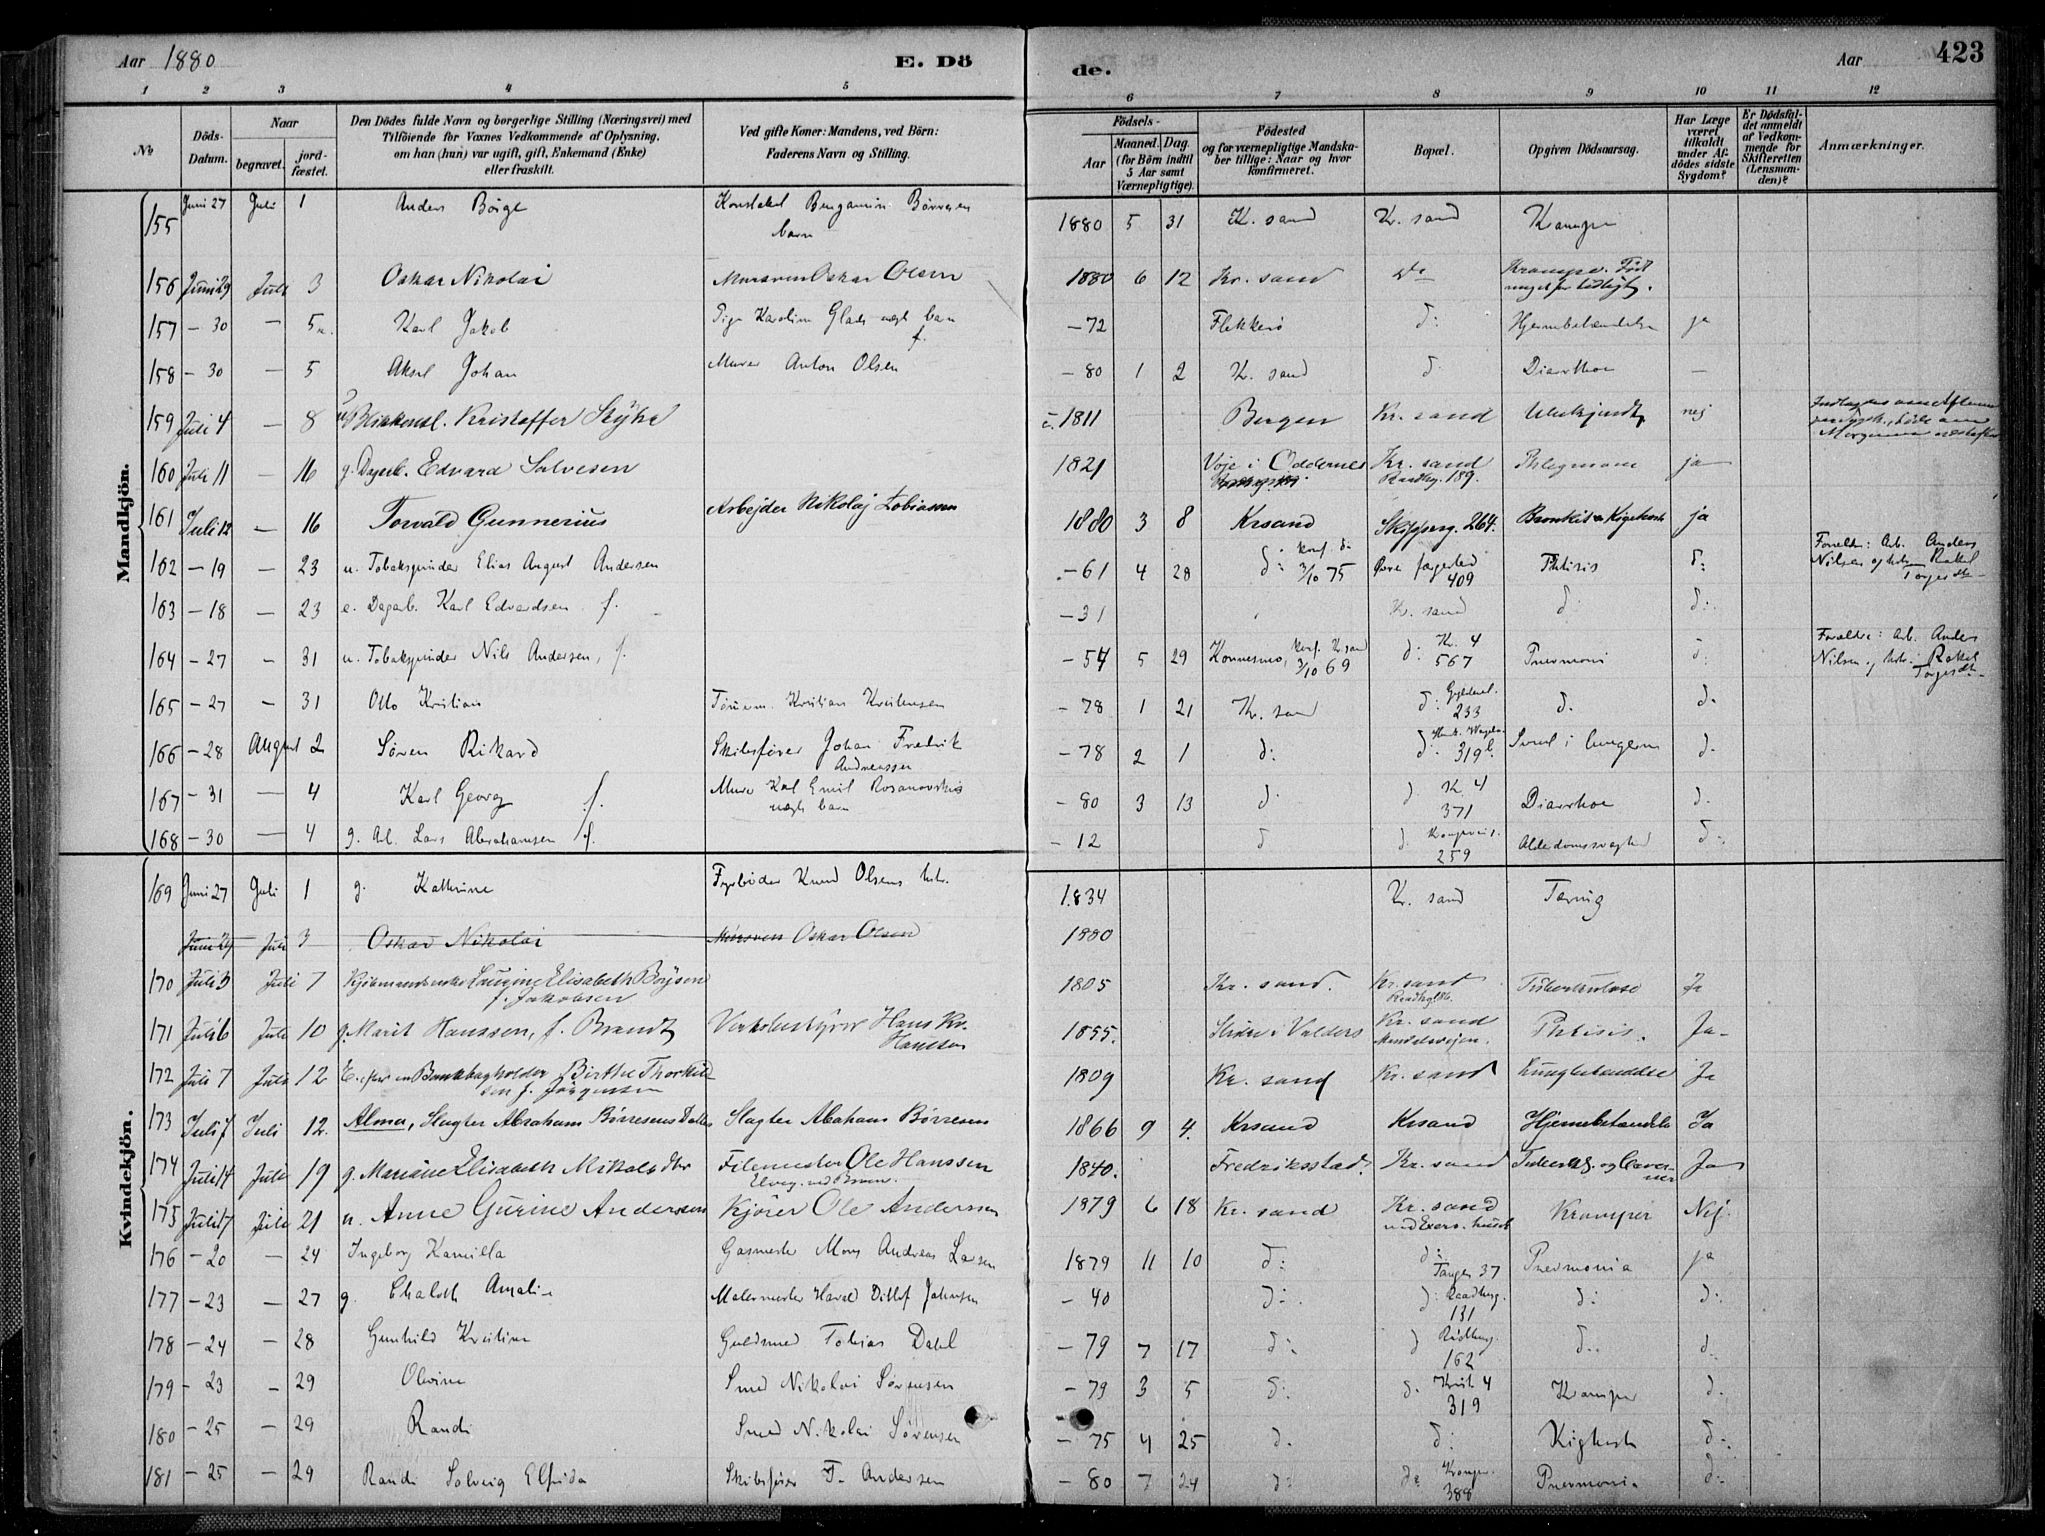 Aar 1880
E. Dö
de.
Aar
423
1 2 3 4 5 6 7 8 9 10 11 12
No
Döds-Datum.
Naar
begravet.
jordfæstet.
Den Dödes fulde Navn og borgerlige Stilling (Næringsvei) med
Tilföiende for Voxnes Vedkommende af Oplysning,
om han (hun) var ugift, gift, Enkemand (Enke)
eller fraskilt.
Ved gifte Koner: Mandens, ved Börn:
Faderens Navn og Stilling.
Födsels-
Aar
Maaned. Dag.
(for Börn indtil
5 Aar samt
Værnepligtige).
Födested
og for værnepligtige Mandska-
ber tillige: Naar og hvor
konfirmeret.
Bopæl.
Opgiven Dödsaarsag.
Har Læge
været
tilkaldt
under Af-
dödes sidste
Sygdom?
Er Dödsfal-
det anmeldt
af Vedkom-
mende for
Skifteretten
(Lensman-
den)?
Anmærkninger.
Mandkjön.
155 Juni 27 Juli 1 Anders Börge Konstabel Bengamin Börresen 1880 5 31 K. sand Kr. sand Krampe
barn
156 Juni 29 Juli 3 Oskar Nikolai Mursven Oskar Olsen 1880 6 12 Kr. sand do Krampe. Født
meget for tidligt.
157 - 30 - 5 Karl Jakob Pige Karoline Glads uægt barn - 72 Flekkerö d: Hjernebetændelse ja
f.
158 - 30 - 5 Aksel Johan Murer Anton Olsen - 80 1 2 K. sand d: Diarrhoe -
159 Juli 4 - 8 Kristoffer 1811 Bergen Kr. sand Ubekjendt nej
160 Juli 11 - 16 g. Dagarb. Edvard Salvesen 1821 Voje i Oddernes Kr. sand Phlegmone ja
Raadhg. 189.
161 Juli 12 - 16 Torvald Gunnerius Arbejder Nikolaj Tobiassen 1880 3 8 Krsand Skipperg. 264. Bronkit & Kigehoste ja
162 - 19 - 23 u. Tobakspinder Elias August Andersen - 61 4 28 d: konf. do 3/10 75 Øvre 409 Phtisis d: Forældre: Arb. Anders
Nilsen og hstr. Rakel
Torgersdtr
163 - 18 - 23 e. Dagarb. Karl Edvardsen f. - 31 Kr. sand d: d:
164 - 27 - 31 u. Tobakspinder Nils Andersen, f. - 54 5 29 Konnesmo, konf. Kr.sand 3/10 69 d: Kr. 4 567 Pnevmoni d: Forældre: Arb. Anders
Nilsen og hstr. Rakel
Torgersdtr
165 - 27 - 31 Otto Kristian Kristian Kristensen - 78 1 21 Kr. sand d: Gyldenl. 233 d. d.
166 - 28 August 2 Søren Rikard Skibsfører Johan Fredrik - 78 2 1 d: d: 319b. Svul i lungerne d.
Andreassen
167 - 31 - 4 Karl Georg f. Murer Karl Emil Rosanovskis - 80 3 13 d: d K. 4 371 Diarrhoe d.
uægte barn
168 - 30 - 4 g. Arb. Lars Abrahamsen f. - 12 d d. Kongensg. 259 Alderdomssvaghed d:
Kvindekjön.
169 Juni 27 Juli 1 g. Kathrine Fyrböder Knud Olsens hstr. 1834 Kr. sand Tæring
Juni 29 Juli 3 Oskar Nikolai Mursven Oskar Olsen 1880
170 Juli 3 Juli 7 Kjøbmandsenke Laurine Elisabeth Boysen 1805 Kr. sand. Kr. sand Tuberkulose Ja
f. Jakobsen
171 Juli 6 Juli 10 g. Marit Hanssen, f. Brandt Hans Kr. 1855. Slidre i Valders Kr. sand Phtisis. Ja
Hanssen Mandalsvejen.
172 Juli 7 Juli 12 E. efter en Bankbogholder Birthe Thorkild 1809 Kr. sand Kr. sand Lungbetændelse Ja
sen f. Jörgensen
173 Juli 7 Juli 12. Alma, Slagter Abrahams Börresens Datter Slagter Abahams Börresens 1866 9 4. Krsand Krsand Hjernebetændelse Ja
174 Juli 14 Juli 19 g. Mariane Elisabeth Filemester Ole Hanssen 1840. Fredriksstad. Kr. sand Ja
175 Juli 17 Juli 21 u. Anne Gurine Andersen Kjører Ole Anderssen 1879 6 18 Kr. sand Kr. sand Kramper Nej.
ved Exers. huset
176 - 20 - 24 Ingeborg Kamilla Gasmester Mons Andreas Larsen 1879 11 10 d: d: Tangen 37 Pnevmonia ja
177 - 23 - 27 g. Chaloth Amalie Malermester Harald Ditlef Johnsen - 40 d: d: Raadhusg. 131 d: d:
178 - 24 - 28 Gunhild Kristine Guldsmed Tobias Dahl - 79 7 17 d: d Rådhusg. 162 d: d.
179 - 23 - 29 Olevine Smed Nikolai Sørensen - 79 3 5 d: d. Krist. 4 319 Kramper d.
180 - 25 - 29 Randi Smed Nikolai Sørensen - 75 4 25 d. d: Kighoste d:
181 - 25 - 29 Randi Solveig Elfrida Skibsfører T. Andersen - 80 7 24 d: do Kronpr. 388 Pnevmonia d: